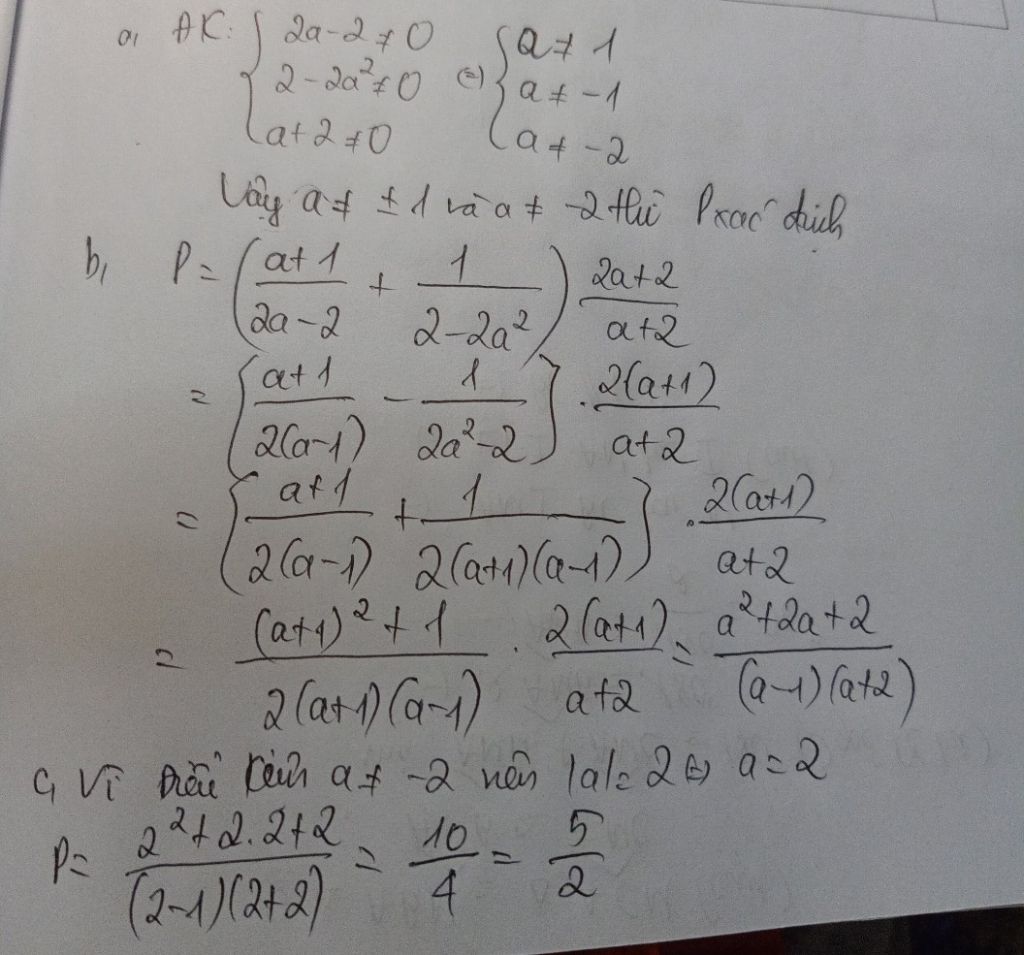 a, ĐK: { 2a-2 ≠ 0 ; 2-2a² ≠ 0 ; a+2 ≠ 0 ⇔ { a ≠ 1 ; a ≠ -1 ; a ≠ -2
Vậy a ≠ ±1 và a ≠ -2 thì P xác định
b, P = ( (a+1)/(2a-2) + 1/(2-2a²) ) (2a+2)/(a+2)
= [ (a+1)/(2(a-1)) - 1/(2a²-2) ] . 2(a+1)/(a+2)
= [ (a+1)/(2(a-1)) + 1/(2(a+1)(a-1)) ] . 2(a+1)/(a+2)
= ((a+1)²+1)/(2(a+1)(a-1)) . 2(a+1)/(a+2) = (a²+2a+2)/((a-1)(a+2))
c, Vì điều kiện a ≠ -2 nên |a| = 2 ⇔ a = 2
P = (2²+2.2+2)/((2-1)(2+2)) = 10/4 = 5/2